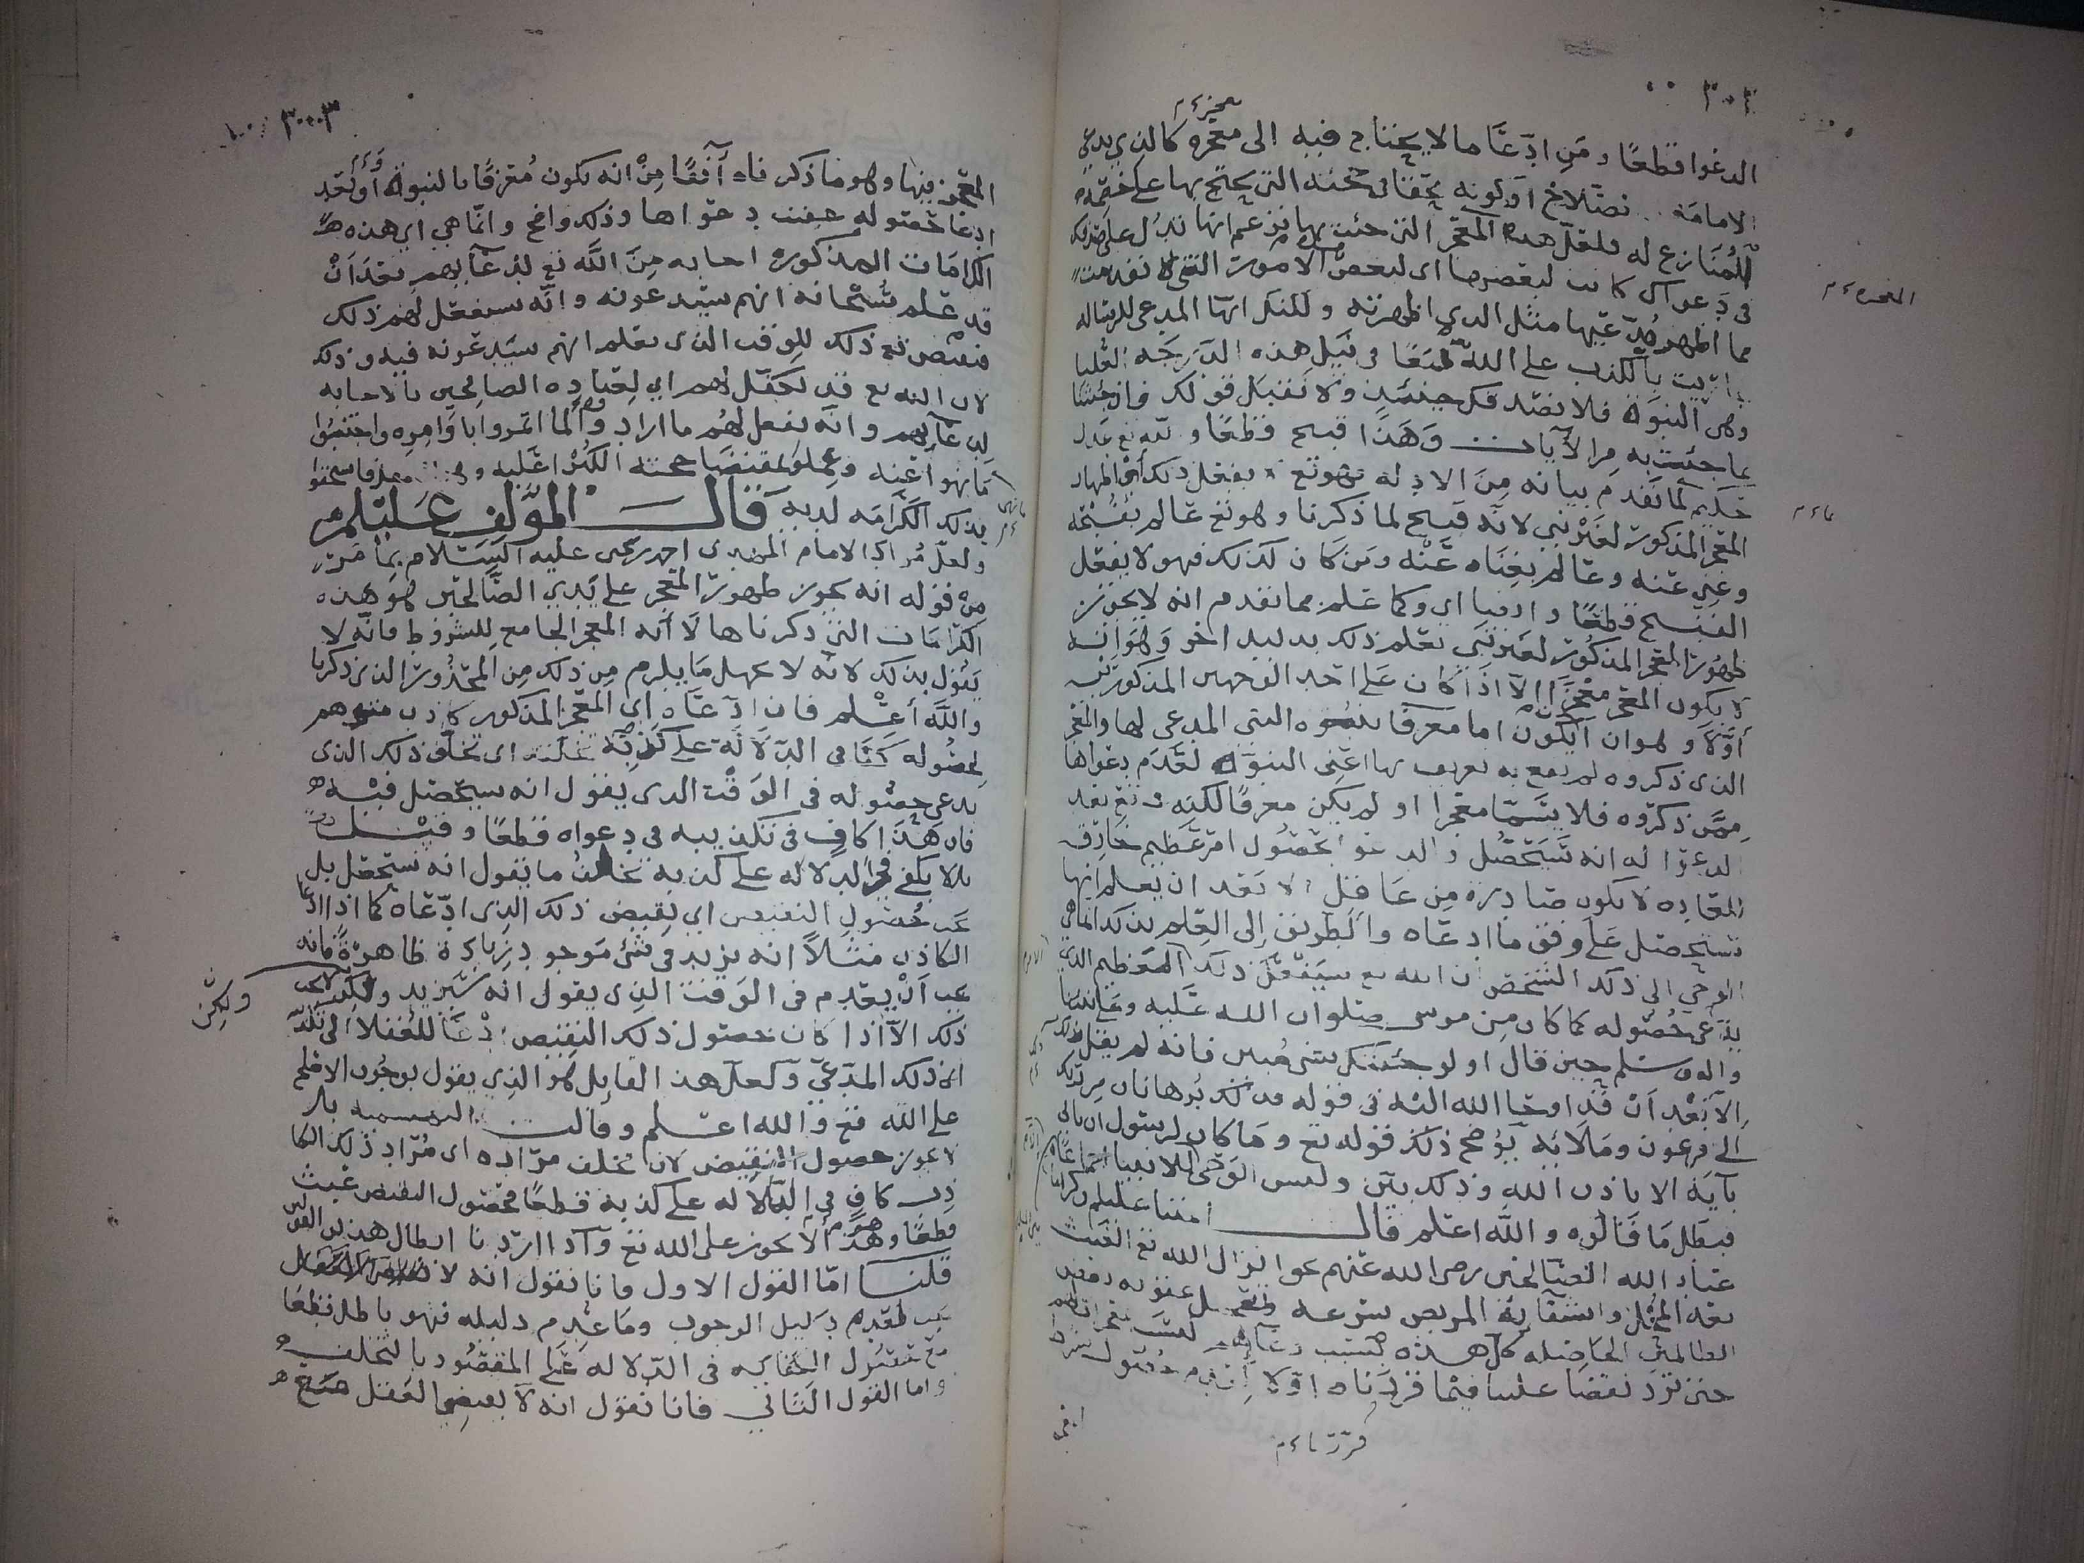 ٣٠٢
الدعوا قطعًا ومن ادعا ما لا يحتاج فيه الى معجزه كالذي يدعي
الامامة او كونه محقا في التي يحتج بها على خصمه
المنازع له فلعل هذه المعجز التي جئت بها تزعم انها تدل على صدقك
في دعواك كانت لبعضها اى لبعض الامور التى لا تفدمت
مما اظهر مدعيها مثل الذي اظهرته ولكنك ايها المدعي للرساله
اتيت بالكذب على الله طمعًا في نيل هذه الدرجه العليا
وهي النبوة فلا نصدقك حينئذٍ ولا نقبل قولك وان جئتنا
بما جئت به من الآيات وهذا قبيح قطعًا والله تع عدل
حكيم لما تقدم بيانه من الادله فهو تع لا يفعل ذلك اى اظهار
المعجز المذكور لغير نبي لانه قبيح لما ذكرنا وهو تع عالم بقبحه
وغني عنه وعالم بغناه عنه ومن كان كذلك فهو لا يفعل
القبيح قطعًا و اي وكما علم مما تقدم انه لا يجوز
ظهور المعجز المذكور لغير نبى نعلم ذلك بدليل اخر وهو انه
لا يكون المعجز معجزًا الا اذا كان على احد الوجهين المذكورين
أوّلا وهو ان يكون اما معرفا بنبوه النبي المدعي لها والمعجز
الذى ذكروه لم يقع به تعريف بها اعني النبوة لعدم دعواها
ممن ذكروه فلا يسمّا معجرا او لم يكن معرفًا لكنه تع بعد
الدعوا له انه سيحصل والدعوا بحصول امر عظيم خارق
للعاده لا يكون صادرة من عاقل الا بعد ان يعلم انها
ستحصل على وفق ما ادعاه والطريق إلى العلم بذلك انما هي
الوحي الى ذلك الشخص ان الله تع سيفعل ذلك العظيم الذي
يدعى حصوله كما كان من موسى صلوات الله عليه وعلى نبينا
واله وسلم حين قال اولو جئتك بشى مبين فانه لم يقل ذلك
إلا بعد أن قد اوحا الله اليه في قوله فذنك برهانان من ربك
الى فرعون وملائه يوضح ذلك قوله تع وما كان لرسول ان يأتي
بآية الا باذن الله وذلك بيّن وليس الوحي الا للانبيا اجماعًا
فبطل ما قالوه والله اعلم قال ائمتنا عليلم وكرامات
عباد الله الصالحين رضي الله عنهم نحو انزال الله تع الغيث
بعد المحل واشفائه المريض سرعه وتعجيل عقوبه بعض
الظالمين الحاصله كل هذه بسبب دعائهم ليست بمعجزات لهم
حتى ترد نقضا علينا فيما قررناه اوّلا لعدم حصول شرط
المعجزه ء م
نماء م
قررنا ء م
٣٠٠٣
المعجز فيها وهو ما ذكرناه آنفًا من انه يكون مُعرفًا بالنبوة أو بعد
ادعا حصوله حيث دعواها وذلك واضح وانما هي اي هذه
الكرامات المذكوره اجابه من الله تع لدعائهم بعد أن
قد علم سُبحانه انهم سيدعونه وانه سيفعل لهم ذلك
تع ذلك للوقت الذى يعلم انهم سيدعونه فيه وذلك
لان الله تع قد تكفل لهم اي لعباده الصالحين بالاجابه
لدعائهم وانه يفعل لهم ما اراد والما ائتمروا باوامره واجتنبوا
ما نهوا عنه وعملوا بمقتضا محبته الكبرا عليه
بذلك الكرامه لديه قال المؤلف عليلم
ولعل مراد الامام المهدي احمد بن يحيى عليه السلام بما مر
من قوله انه يجوز ظهور المعجز على يدي الصالحين هو هذه
الكرامات التي ذكرناها لا أنه المعجز الجامع للشروط فانه لا
يقول بذلك لانه لا يجهل ما يلزم من ذلك من المحذور الذي ذكرنا
والله أعلم فان ادعاه اى المعجز المذكور كاذب متوهم
لحصوله كفا في الدلاله على كذبه تخلفه اى تخلف ذلك الذى
يدعى حصوله في الوقت الذى يقول انه سيحصل فيه
فان هذا كافٍ في تكذيبه في دعواه قطعًا وقيل
بل لا يكفي في الدلاله على كذبه تخلف ما يقول انه سيحصل بل
يجب حصول النقيض اي نقيض ذلك الذى ادعاه كما اذا ادعا
الكاذب مثلًا انه يزيد في شئ موجود زيادة ظاهرةً فانه
يجب أن يعدم فى الوقت الذي يقول انه سيزيد ولا يجب
ذلك الا اذا كان حصول ذلك النقيض ردعًا للعقلا الى
ان ذلك المدعي ولعل هذا القايل هو الذي يقول بوجوب الاصلح
على الله تع والله اعلم وقالت البهشميه بل
لا يجوز حصول النقيض لان تخلف مراده اى مراد ذلك الكا
ذب كافٍ في الدلاله على كذبه قطعًا فحصول النقيض عبث
قطعًا وهو لا يجوز على الله تع واذا اردنا ابطال هذين القولين
قلنا امّا القول الاول فانا نقول انه لا
يجب لعدم دليل الوجوب وما عدم دليله فهو باطل قطعًا
مع حصول الكفايه في الدلاله على المقصود بالتخلف
واما القول الثاني فانا نقول انه لا يقضي العقل
ولكن